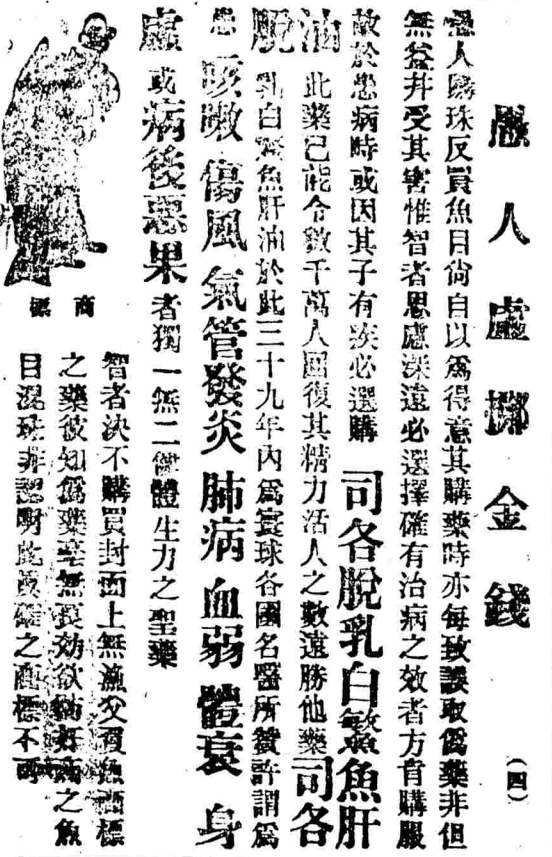 愚人虛擲金錢
(四)
愚人鬻珠反買魚目尙自以爲得意其購藥時亦每致誤取僞藥非但
無益幷受其害惟智者思慮深遠必選擇確有治病之效者方肯購服
故於患病時或因其子有疾必選購司各脫乳白鰵魚肝
油此藥已能令數千萬人囘復其精力活人之數遠勝他藥司各
脫乳白鰵魚肝油於此三十九年內爲寰球各國名醫所贊許謂爲
患咳嗽傷風氣管發炎肺病血弱體衰身
虛或病後惡果者獨一無二健體生力之聖藥
智者決不購買封面上無漁父負魚商標
之藥彼知僞藥毫無良効欲
之魚
目混珠非認明此眞確之商標不可
商標